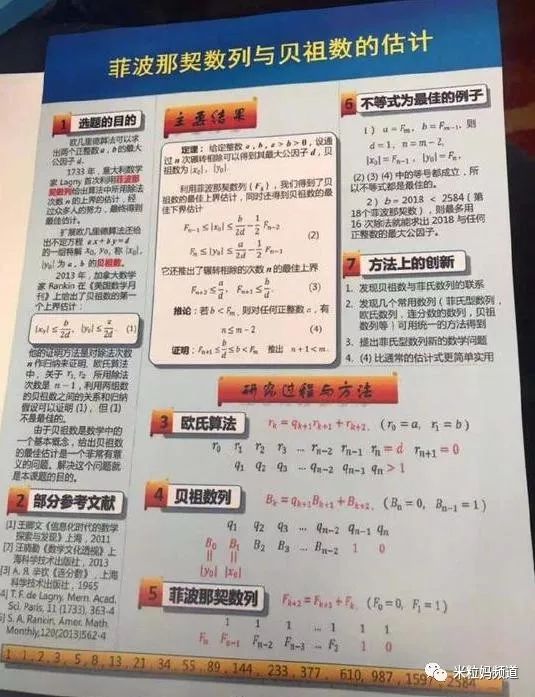 菲波那契数列与贝祖数的估计
1 选题的目的
欧几里德算法可以求
出两个正整数 a , b 的最大
公因子 d .
1733 年，意大利数学
家 Lagny 首次利用菲波那
契数列给出算法中所用除法
次数 n 的上界的估计，经
过众多人的努力，最终得到
最佳估计。
扩展欧几里德算法还给
出不定方程 ax+by=d
的一组特解 x₀, y₀, 称 |x₀|,
|y₀| 为 a , b 的贝祖数。
2013 年，加拿大数学
家 Rankin 在《美国数学月
刊》上给出了贝祖数的第一
个上界估计：
|x₀| ≤ b/2d, |y₀| ≤ a/2d. (1)
他的证明方法是对除法次数
n 作归纳来证明. 欧氏算法
中，关于 r₁, r₂ 所用除法
次数是 n − 1，利用两组数
的贝祖数之间的关系和归纳
假设可以证明 (1)，但 (1)
不是最佳的。
由于贝祖数是数学中的
一个基本概念，给出贝祖数
的最佳估计是一个非常有意
义的问题。解决这个问题就
是本课题的目的。
2 部分参考文献
[1] 王卿文《信息化时代的数学
探索与发现》上海，2011
汪晓勤《数学文化透视》上
海科学技术出版社，2013
[3] A. Я. 辛钦《连分数》，上海
科学技术出版社，1965
4] T. F. de Lagny, Mem. Acad.
Sci. Paris, 11 (1733), 363-4
5] S. A. Rankin, Amer. Math.
Monthly,120(2013)562-4
主要结果
定理：给定整数 a , b , a > b > 0，设通
过 n 次辗转相除可以得到其最大公因子 d，贝
祖数为 |x₀|, |y₀|.
利用菲波那契数列 {Fₖ}，我们得到了贝
祖数的最佳上界估计，同时还得到贝祖数的最
佳下界估计
Fₙ₋₁ ≤ |x₀| ≤ b/2d − 1/2 Fₙ₋₂
(2)
Fₙ ≤ |y₀| ≤ a/2d − 1/2 Fₙ₋₁
它还推出了辗转相除的次数 n 的最佳上界
Fₙ₊₂ ≤ a/d, Fₙ₊₁ ≤ b/d. (3)
推论：若 b < Fₘ, 则对任何正整数 a , 有
n ≤ m − 2 (4)
证明：Fₙ₊₁ ≤ b/d ≤ b < Fₘ 推出 n + 1 < m.
6 不等式为最佳的例子
1) a = Fₘ, b = Fₘ₋₁, 则
d = 1, n = m − 2,
|x₀| = Fₙ₋₁, |y₀| = Fₙ.
(2) (3) (4) 中的等号都成立，所
以不等式都是最佳的。
2) b = 2018 < 2584 (第
18个菲波那契数)，则最多用
16 次除法就能求出 2018 与任何
正整数的最大公因子。
7 方法上的创新
1. 发现贝祖数与菲氏数列的联系
2. 发现几个常用数列（菲氏型数列，
欧氏数列，连分数的数列，贝祖
数列等）可用统一的方法得到
3. 提出菲氏型数列新的数学问题
4. (4) 比通常的估计式更简单实用
研究过程与方法
3 欧氏算法 rₖ = qₖ₊₁rₖ₊₁ + rₖ₊₂, (r₀ = a, r₁ = b)
r₀ r₁ r₂ r₃ ... rₙ₋₂ rₙ₋₁ rₙ = d rₙ₊₁ = 0
q₁ q₂ q₃ ... qₙ₋₂ qₙ₋₁ qₙ > 1
4 贝祖数列 Bₖ = qₖ₊₁Bₖ₊₁ + Bₖ₊₂, (Bₙ = 0, Bₙ₋₁ = 1)
q₁ q₂ q₃ ... qₙ₋₂ qₙ₋₁ qₙ
B₀ B₁ B₂ B₃ ... Bₙ₋₂ 1 0
|| ||
|y₀| |x₀|
5 菲波那契数列 Fₖ₊₂ = Fₖ₊₁ + Fₖ, (F₀ = 0, F₁ = 1)
1 1 1 ... 1 1 1
Fₙ Fₙ₋₁ Fₙ₋₂ Fₙ₋₃ ... F₂ 1 0
1, 1, 2, 3, 5, 8, 13, 21, 34, 55, 89, 144, 233, 377, 610, 987, 1597, 2584
米粒妈频道